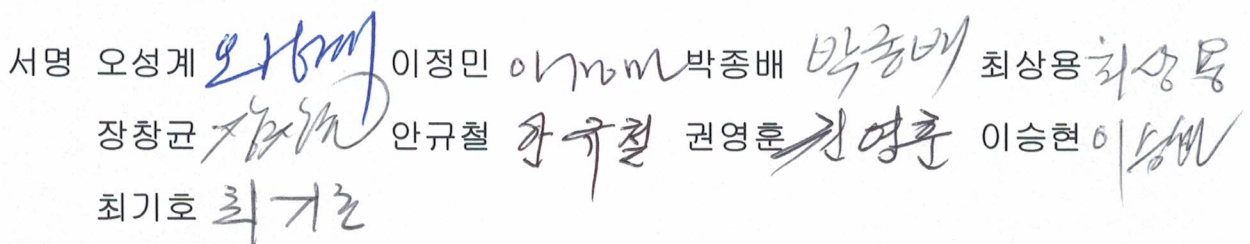 서명 오성계 오성계 이정민 이정민 박종배 박종배 최상용 최상용
장창균 장창균 안규철 안규철 권영훈 권영훈 이승현 이승현
최기호 최기호